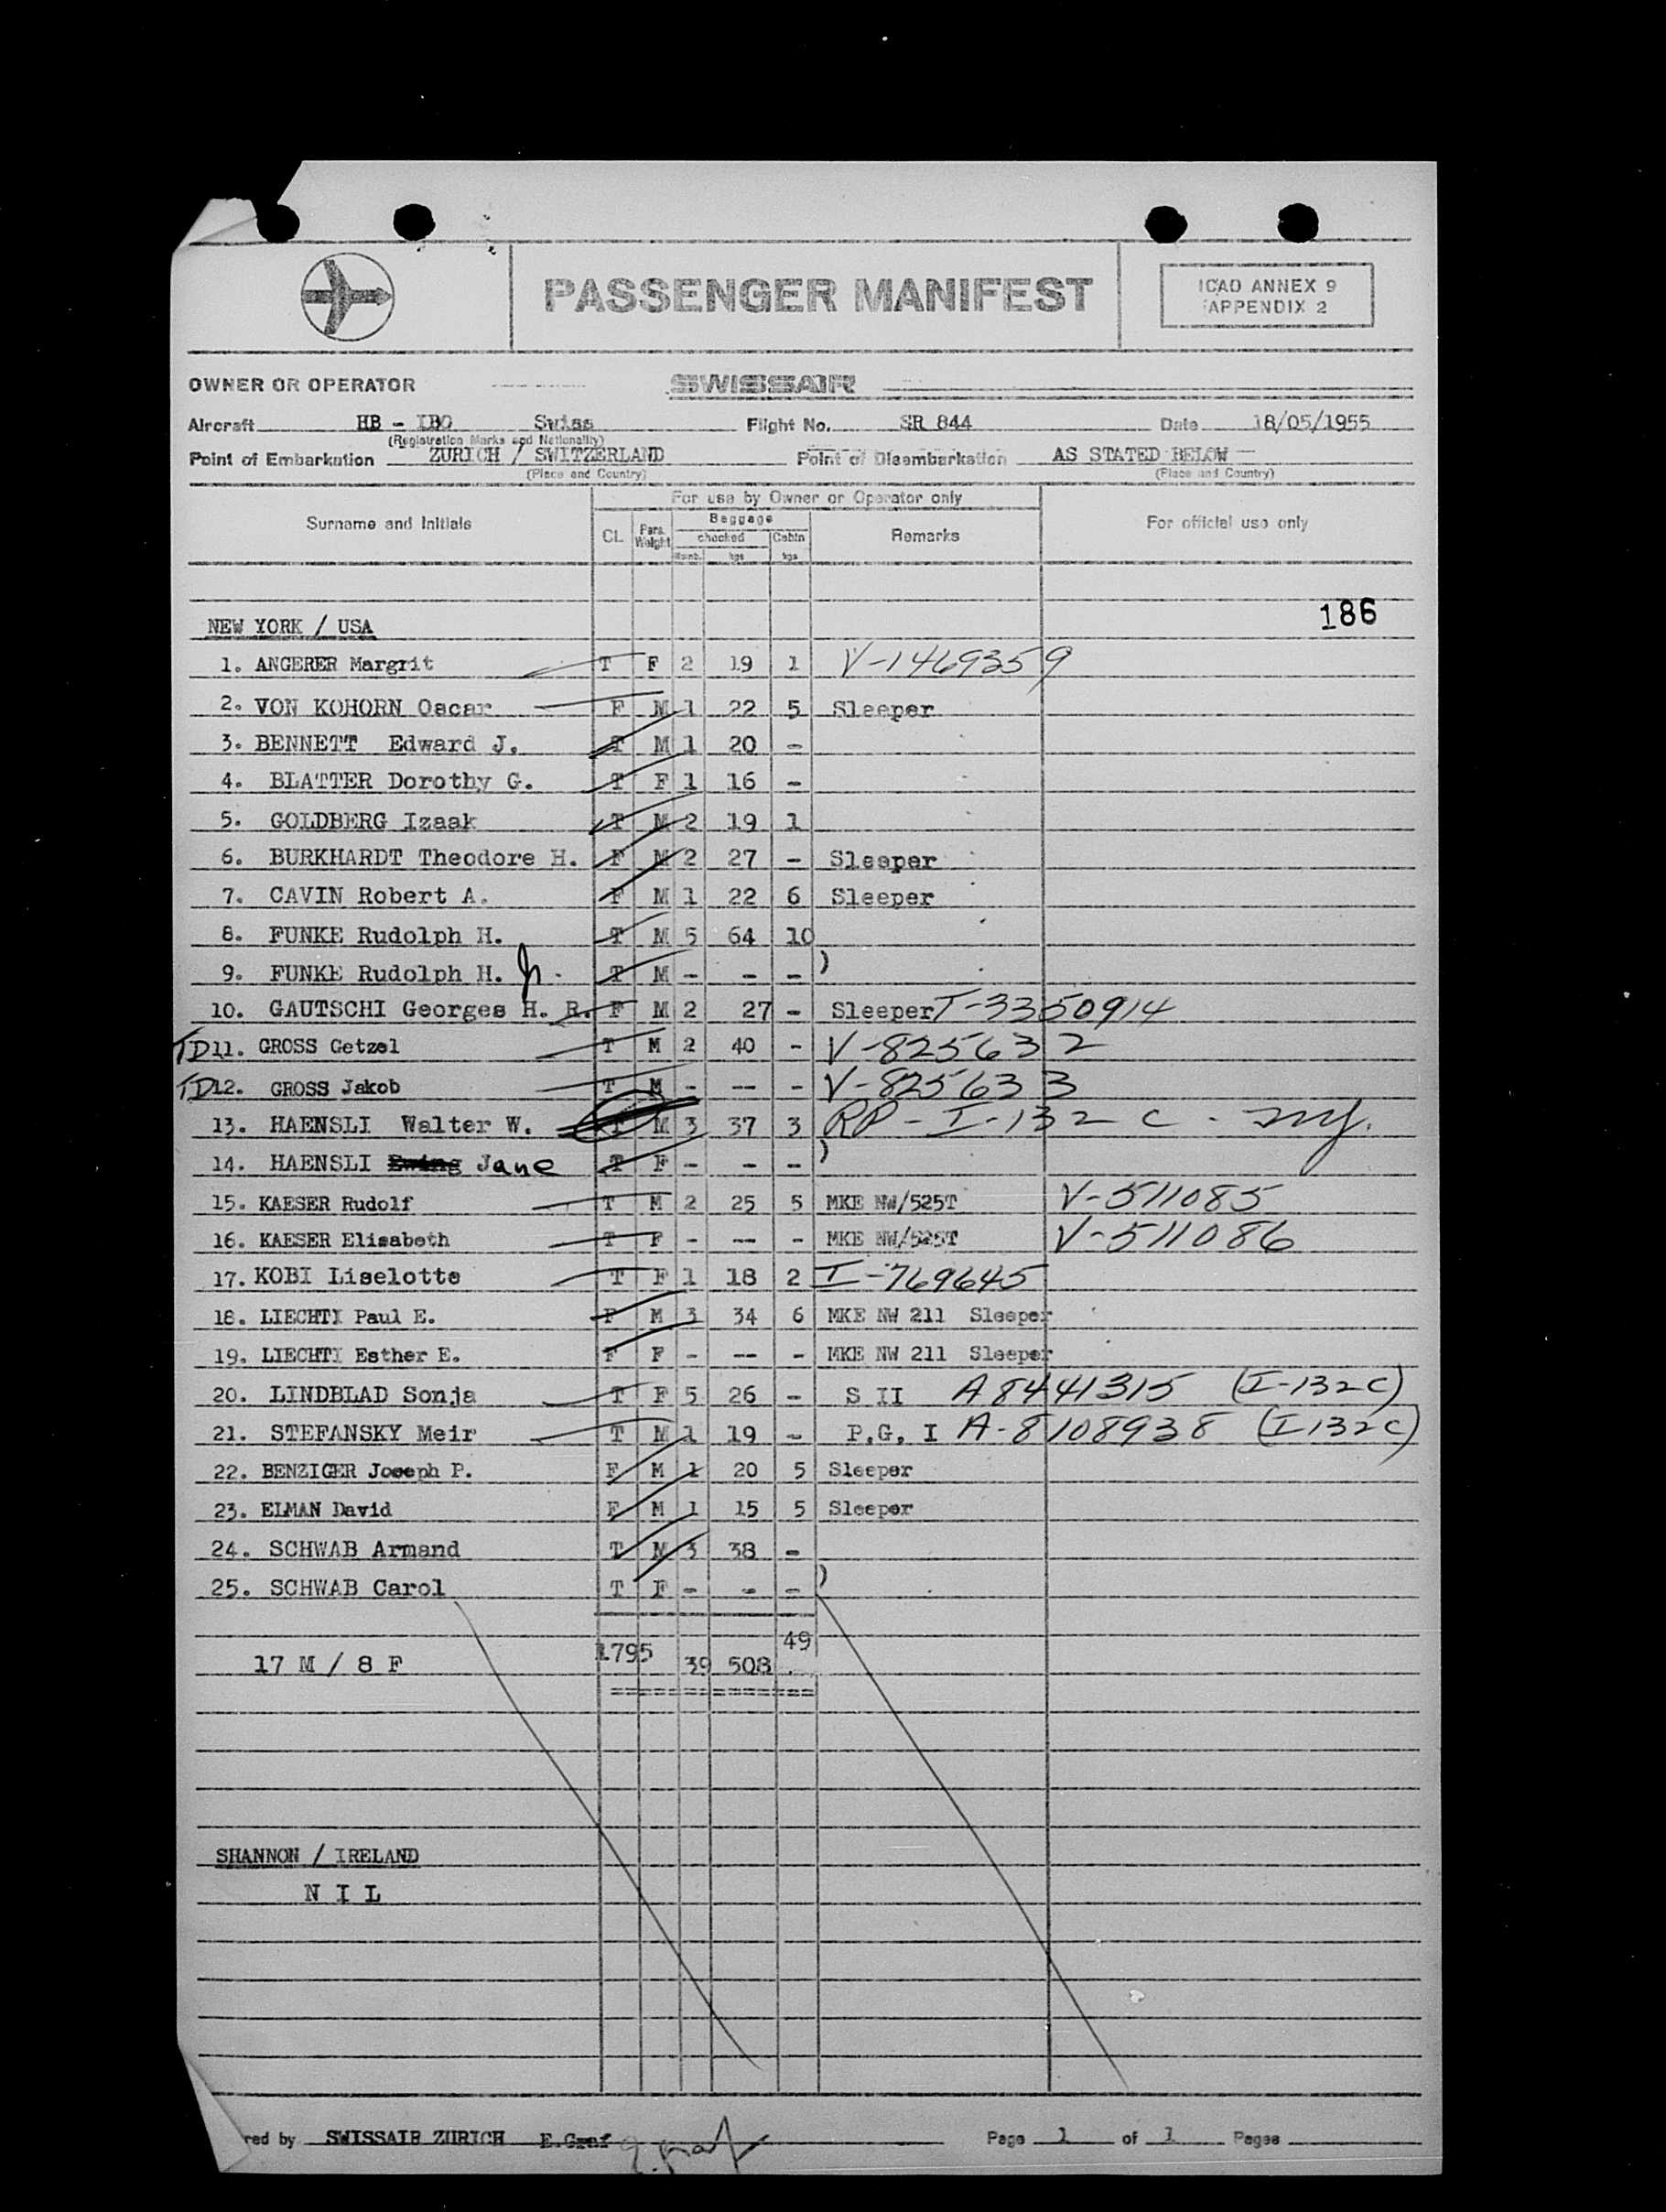 PASSENGER MANIFEST
ICAO ANNEX 9
APPENDIX 2
OWNER OR OPERATOR SWISSAIR
Aircraft HB - IBO Swiss Flight No. SR 844 Date 18/05/1955
(Registration Marks and Nationality)
Point of Embarkation ZURICH / SWITZERLAND Point of Disembarkation AS STATED BELOW
(Place and Country) (Place and Country)
For use by Owner or Operator only
Surname and Initials CL Pass. Weight Baggage checked Numb. kgs Cabin kgs Remarks For official use only
186
NEW YORK / USA
1. ANGERER Margrit T F 2 19 1 V-1469359
2. VON KOHORN Oscar F M 1 22 5 Sleeper
3. BENNETT Edward J. T M 1 20 -
4. BLATTER Dorothy G. T F 1 16 -
5. GOLDBERG Izaak T M 2 19 1
6. BURKHARDT Theodore H. F M 2 27 - Sleeper
7. CAVIN Robert A. F M 1 22 6 Sleeper
8. FUNKE Rudolph H. T M 5 64 10
9. FUNKE Rudolph H. Jr. T M - - - )
10. GAUTSCHI Georges H. R. F M 2 27 - Sleeper T-3350914
TD 11. GROSS Getzel T M 2 40 - V-825632
TD 12. GROSS Jakob T M - -- - V-825633
13. HAENSLI Walter W. T M 3 37 3 RP - I-132 C - ny.
14. HAENSLI Ewing Jane T F - - - )
15. KAESER Rudolf T M 2 25 5 MKE NW/525T V-511085
16. KAESER Elisabeth T F - -- - MKE NW/525T V-511086
17. KOBI Liselotte T F 1 18 2 I-769645
18. LIECHTI Paul E. F M 3 34 6 MKE NW 211 Sleeper
19. LIECHTI Esther E. F F - -- - MKE NW 211 Sleeper
20. LINDBLAD Sonja T F 5 26 - S II A8441315 (I-132C)
21. STEFANSKY Meir T M 1 19 - P.G. I A-8108938 (I132C)
22. BENZIGER Joseph P. F M 1 20 5 Sleeper
23. ELMAN David F M 1 15 5 Sleeper
24. SCHWAB Armand T M 3 38 -
25. SCHWAB Carol T F - - - )
17 M / 8 F 1795 39 508 49
SHANNON / IRELAND
N I L
red by SWISSAIR ZURICH E.Graf Page 1 of 1 Pages